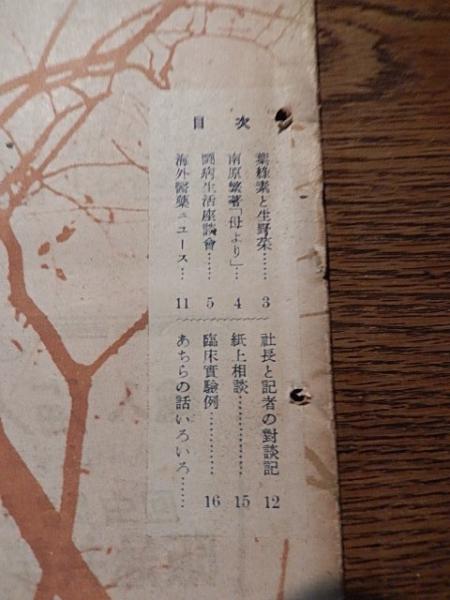 目次
葉綠素と生野菜……3
南原繁著「母より」…4
鬪病生活座談會……5
海外醫藥ニユース…11
社長と記者の對談記 12
紙上相談……………15
臨床實驗例…………16
あちらの話いろいろ……